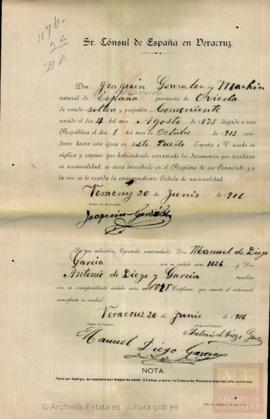 Sr. Cónsul de España en Veracruz.
Don Joaquin Gonzalez y Machin
natural de España provincia de Oviedo
de estado soltero y profesión Comerciante
nacido el día 4 del mes Agosto de 1875 llegado a esta
República el día 1 del mes Octubre de 1913
hasta esta época en este Puerto España a V. acude en
súplica y expone que habiéndosele extraviado los documentos que acreditan
su nacionalidad, se sirva inscribirle en el Registro de ese Consulado y a la
vez se le expida la correspondiente Cédula de nacionalidad.
Veracruz 20 de Junio de 1916
Joaquin Gonzalez
Los que subscriben, Españoles matriculados: Don Manuel de Diego
Garcia con su cédula núm. 1026 y Don
Antonio de Diego y Garcia
con su correspondiente cédula núm. 1025 Certifican que cuanto el interesado
manifiesta es verdad.
Veracruz 20 de Junio 1916
Antonio Diego Garcia
Manuel Diego Garcia
NOTA.
© Archivos Estatales, cultura.gob.es